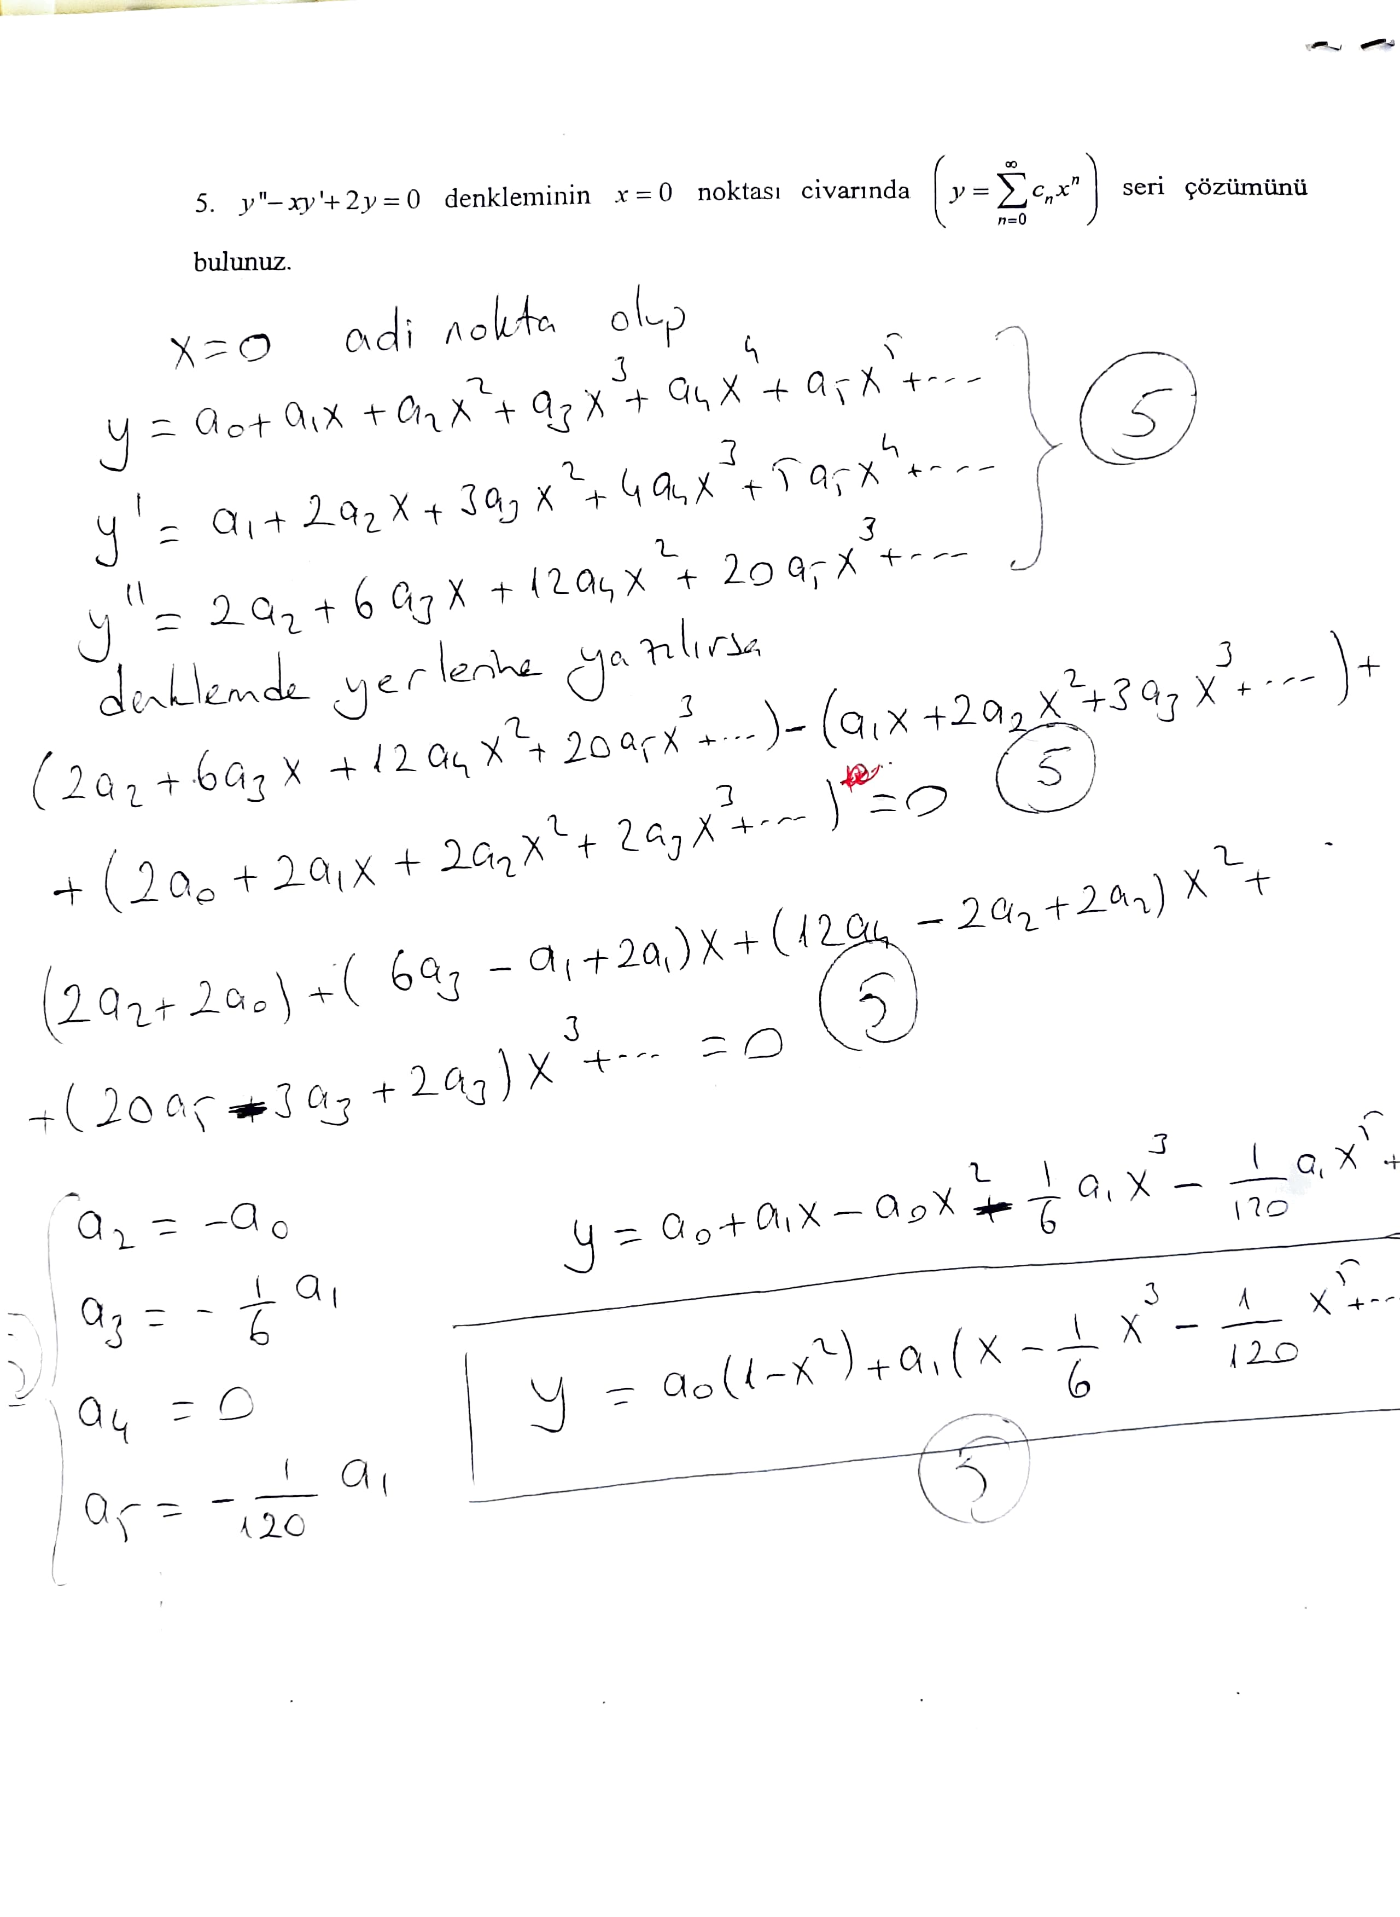 5. y"-xy'+2y=0 denkleminin x=0 noktası civarında (y=∑_{n=0}^{∞} c_n x^n) seri çözümünü
bulunuz.
x=0 adi nokta olup
y = a₀+a₁x+a₂x²+a₃x³+a₄x⁴+a₅x⁵+.... 5
y' = a₁+2a₂x+3a₃x²+4a₄x³+5a₅x⁴+....
y'' = 2a₂+6a₃x+12a₄x²+20a₅x³+....
denklemde yerlerine yazılırsa
(2a₂+6a₃x+12a₄x²+20a₅x³+...)-(a₁x+2a₂x²+3a₃x³+....)+
+(2a₀+2a₁x+2a₂x²+2a₃x³+....)=0 5
(2a₂+2a₀)+(6a₃-a₁+2a₁)x+(12a₄-2a₂+2a₂)x²+
+(20a₅-3a₃+2a₃)x³+.... =0 5
a₂ = -a₀
a₃ = -1/6 a₁
a₄ = 0
a₅ = -1/120 a₁
y = a₀+a₁x-a₀x²-1/6 a₁x³-1/120 a₁x⁵+
y = a₀(1-x²)+a₁(x-1/6 x³-1/120 x⁵+...
5